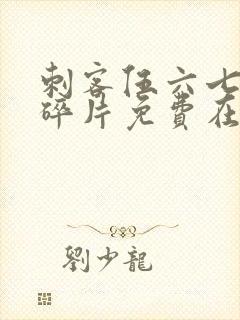 刺客伍六七
碎片免費在
劉少龍